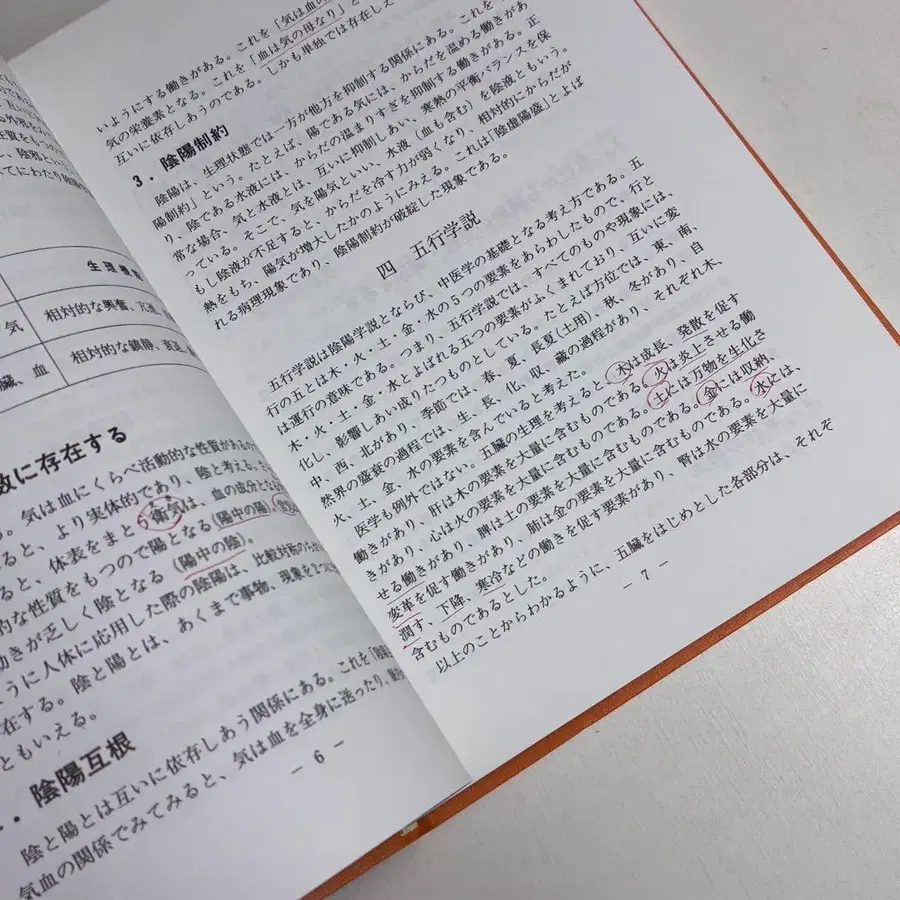 生理機
気 相対的な興奮、亢進、
臓、血 相対的な鎮静、衰退、
数に存在する
気は血にくらべ活動的な性質がある
ると、より実体的であり、陰と考える。
ると、体表をまとう衛気は、血の成分となる
(陽中の陽)、
的な性質をもつので陽となる
動きが乏しく陰となる(陽中の陰)。
ように人体に応用した際の陰陽は、比較対称の
在する。陰と陽とは、あくまで事物、現象を2つ
ともいえる。
陰陽互根
陰と陽とは互いに依存しあう関係にある。これを「陰陽
気血の関係でみてみると、気は血を全身に送ったり、
− 6 −
いようにする働きがある。これを「気は血の
気の栄養素となる。これを「血は気の母なり」と
互いに依存しあうのである。しかも単独では存在しえ
3．陰陽制約
陰陽は、生理状態では一方が他方を抑制する関係にある。これを「陰
陽制約」という。たとえば、陽である気には、からだを温める働きがあ
り、陰である水液には、からだの温まりすぎを抑制する働きがある。正
常な場合、気と水液とは、互いに抑制しあい、寒熱の平衡バランスを保
っている。そこで、気を陽気といい、水液(血も含む)を陰液ともいう。
もし陰液が不足すると、からだを冷す力が弱くなり、相対的にからだが
熱をもち、陽気が増大したかのようにみえる。これは「陰虚陽盛」とよば
れる病理現象であり、陰陽制約が破綻した現象である。
四　五行学説
五行学説は陰陽学説とならび、中医学の基礎となる考え方である。五
行の五とは木・火・土・金・水の5つの要素をあらわしたもので、行と
は運行の意味である。つまり、五行学説では、すべてのものや現象には、
木・火・土・金・水とよばれる五つの要素がふくまれており、互いに変
化し、影響しあい成りたつものとしている。たとえば方位では、東、南、
中、西、北があり、季節では、春、夏、長夏(土用)、秋、冬があり、自
然界の盛衰の過程では、生、長、化、収、蔵の過程があり、それぞれ木、
火、土、金、水の要素を含んでいると考えた。
医学も例外ではない。五臓の生理を考えると、木は成長、発散を促す
働きがあり、肝は木の要素を大量に含むものである。火は炎上させる働
きがあり、心は火の要素を大量に含むものである。土には万物を生化さ
せる働きがあり、脾は土の要素を大量に含むものである。金には収納、
変革を促す働きがあり、肺は金の要素を大量に含むものである。水には、
潤す、下降、寒冷などの働きを促す要素があり、腎は水の要素を大量に
含むものであるとした。
以上のことからわかるように、五臓をはじめとした各部分は、それぞ
− 7 −